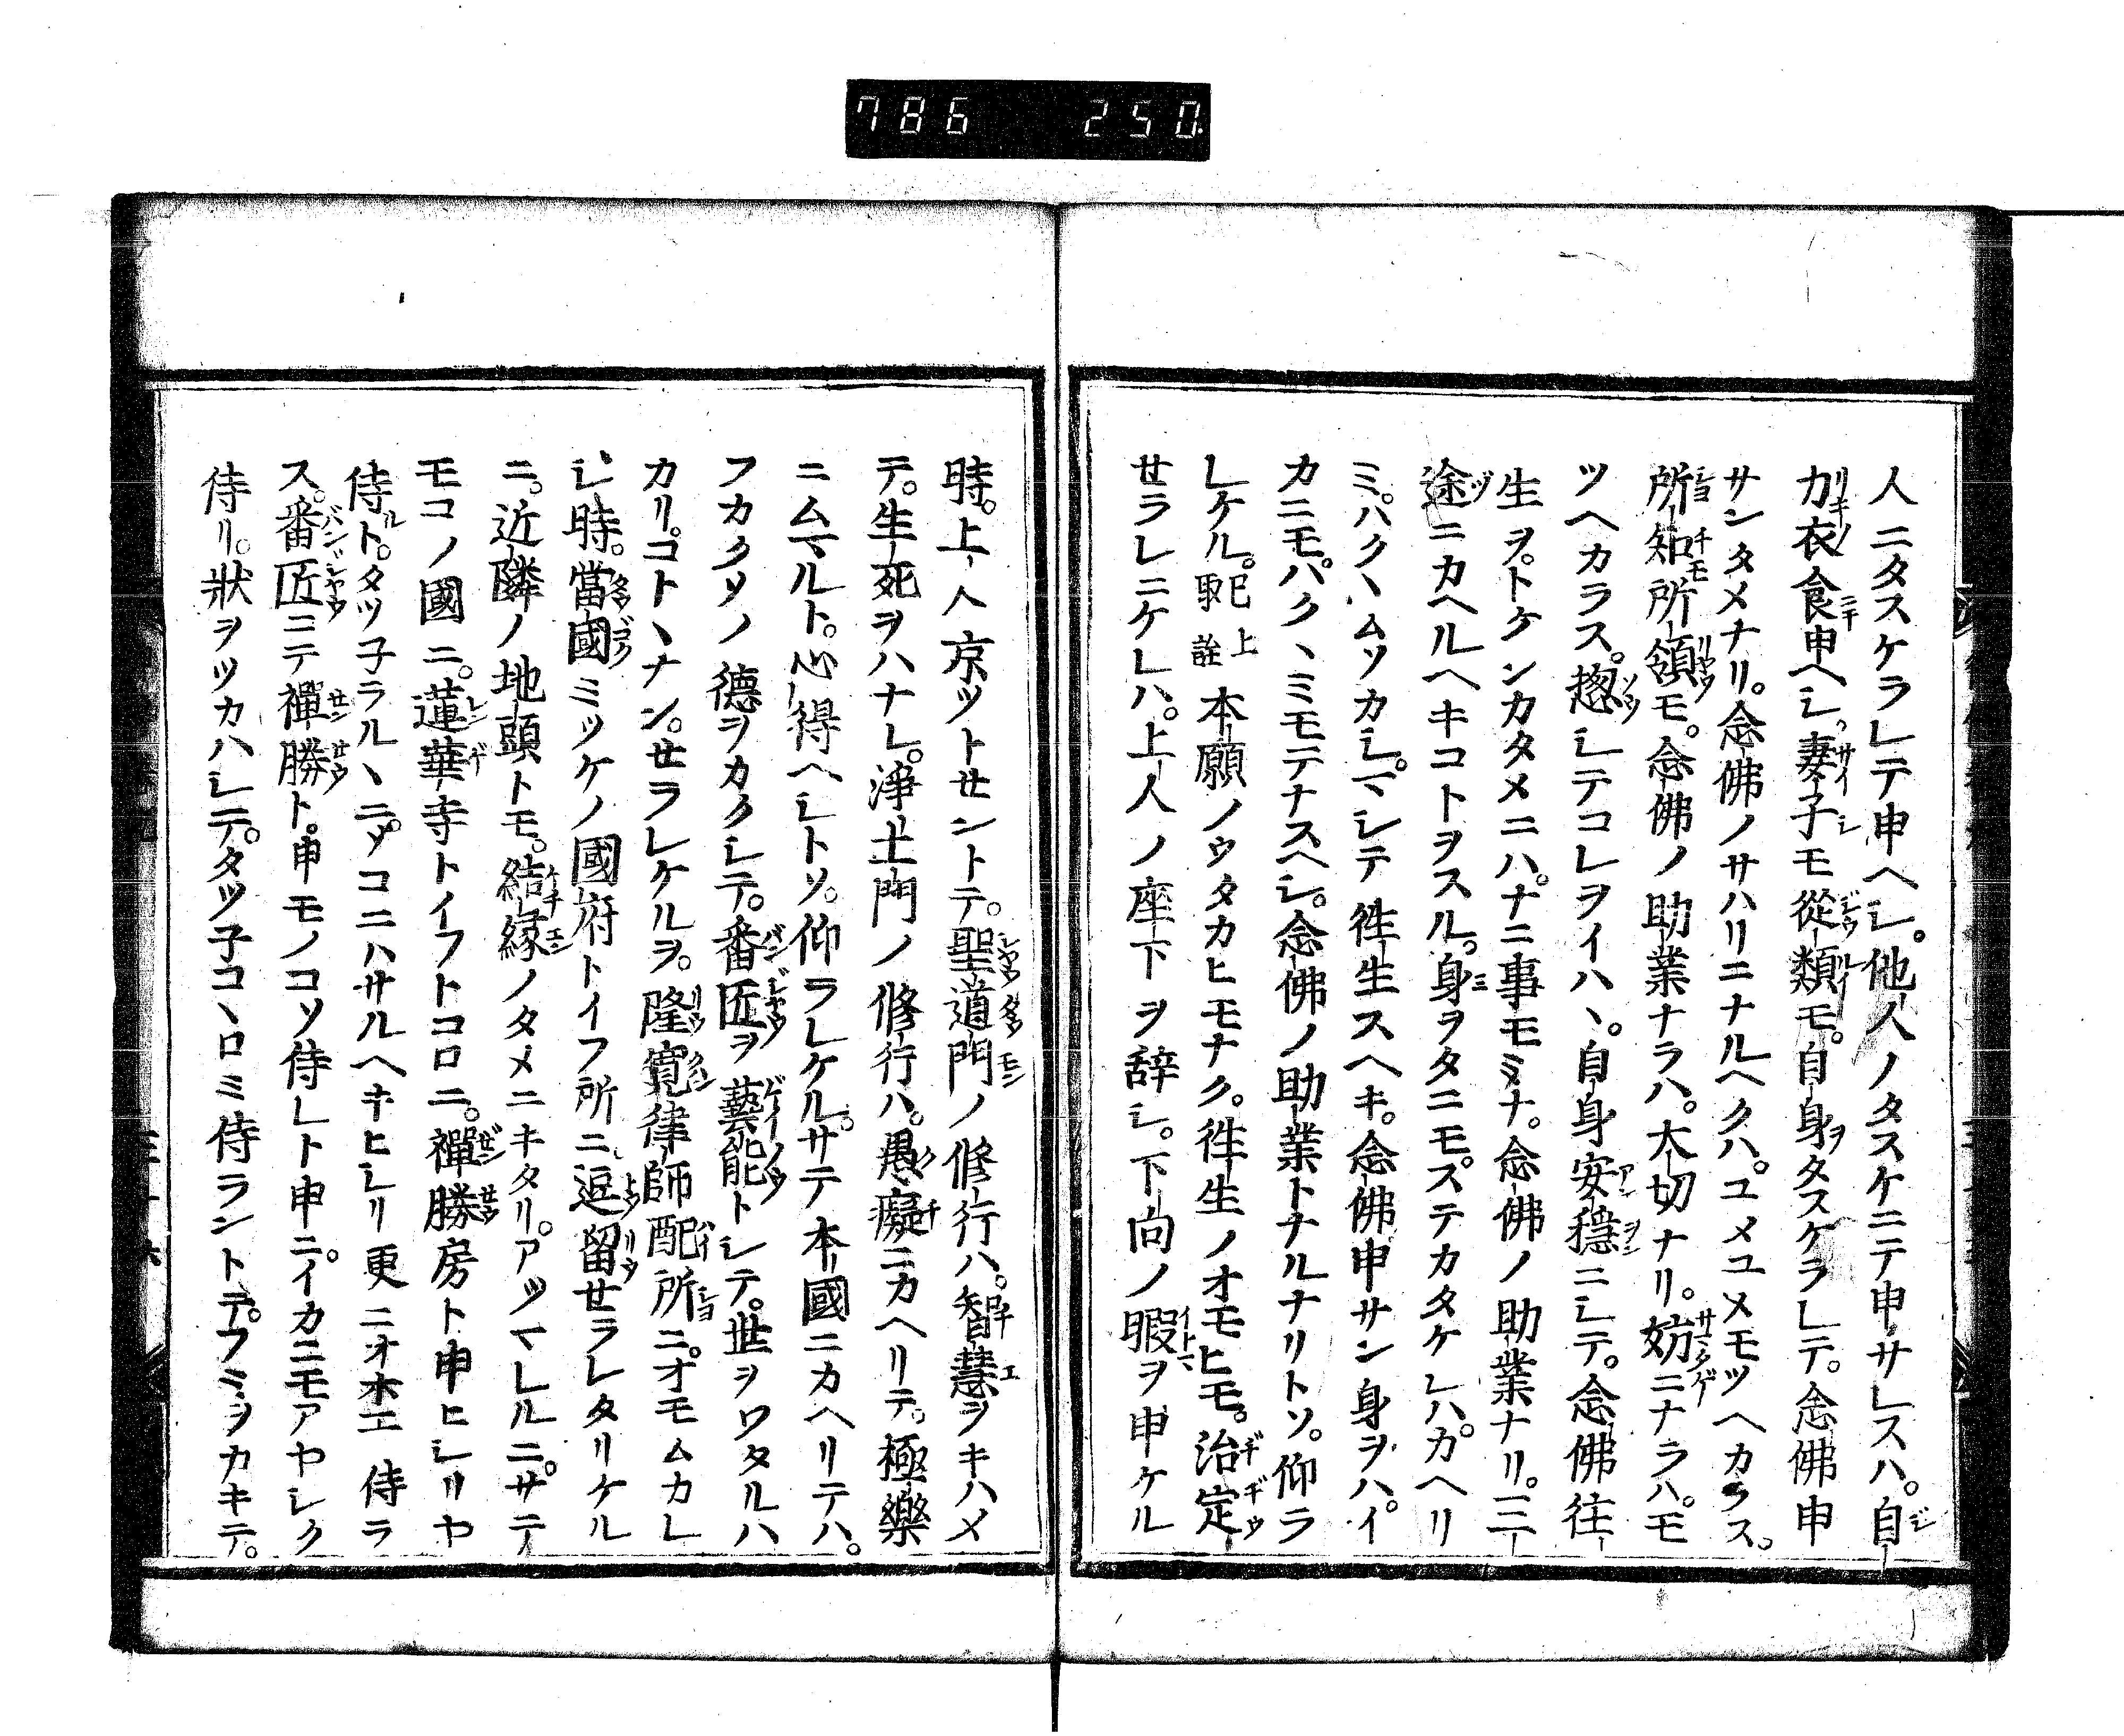 786 250.
人ニタスケラレテ申ヘシ。他人ノタスケニテ申サレスハ。自
力衣食申ヘシ。妻子モ從類モ。自身ヲタスケラレテ。念佛申
サンタメナリ。念佛ノサハリニナルヘクハ。ユメユメモツヘカラス。
所知所領モ。念佛ノ助業ナラハ。大切ナリ。妨ニナラハ。モ
ツヘカラス。揔シテコレヲイハヽ。自身安穩ニシテ。念佛往
生ヲ。トケンカタメニハ。ナニ事モミナ。念佛ノ助業ナリ。三
途ニカヘルヘキコトヲスル。身ヲタニモ。ステカタケレハ。カヘリ
ミ。ハクヽムソカシ。マシテ徃生スヘキ。念佛申サン身ヲハ。イ
カニモ。ハクヽミモテナスヘシ。念佛ノ助業トナルナリトソ。仰ラ
レケル。已上取詮本願ノウタカヒモナク。徃生ノオモヒモ。治定
セラレニケレハ。上人ノ座下ヲ辞シ。下向ノ暇ヲ申ケル
時。上人京ツトセントテ。聖道門ノ修行ハ。智慧ヲキハメ
テ。生死ヲハナレ。淨土門ノ修行ハ。愚癡ニカヘリテ。極樂
ニムマルト。心得ヘシトソ。仰ラレケル。サテ本國ニカヘリテハ。
フカクソノ德ヲカクシテ。番匠ヲ藝能トシテ。世ヲワタルハ
カリコトヽナン。セラレケルヲ。隆寬律師配所ニ。オモムカレ
シ時。當國ミツケノ國府トイフ所ニ逗留セラレタリケル
ニ。近隣ノ地頭トモ。結縁ノタメニキタリ。アツマレルニ。サテ
モコノ國ニ。蓮華寺トイフトコロニ。禪勝房ト申ヒシリヤ
侍ルト。タツ子ラルヽニ。ソコニハサルヘキヒシリ更ニオホエ侍ラ
ス。番匠ニテ禪勝ト。申モノコソ侍レト申ニ。イカニモアヤシク
侍リ。狀ヲツカハシテ。タツ子コヽロミ侍ラントテ。フミヲカキテ。